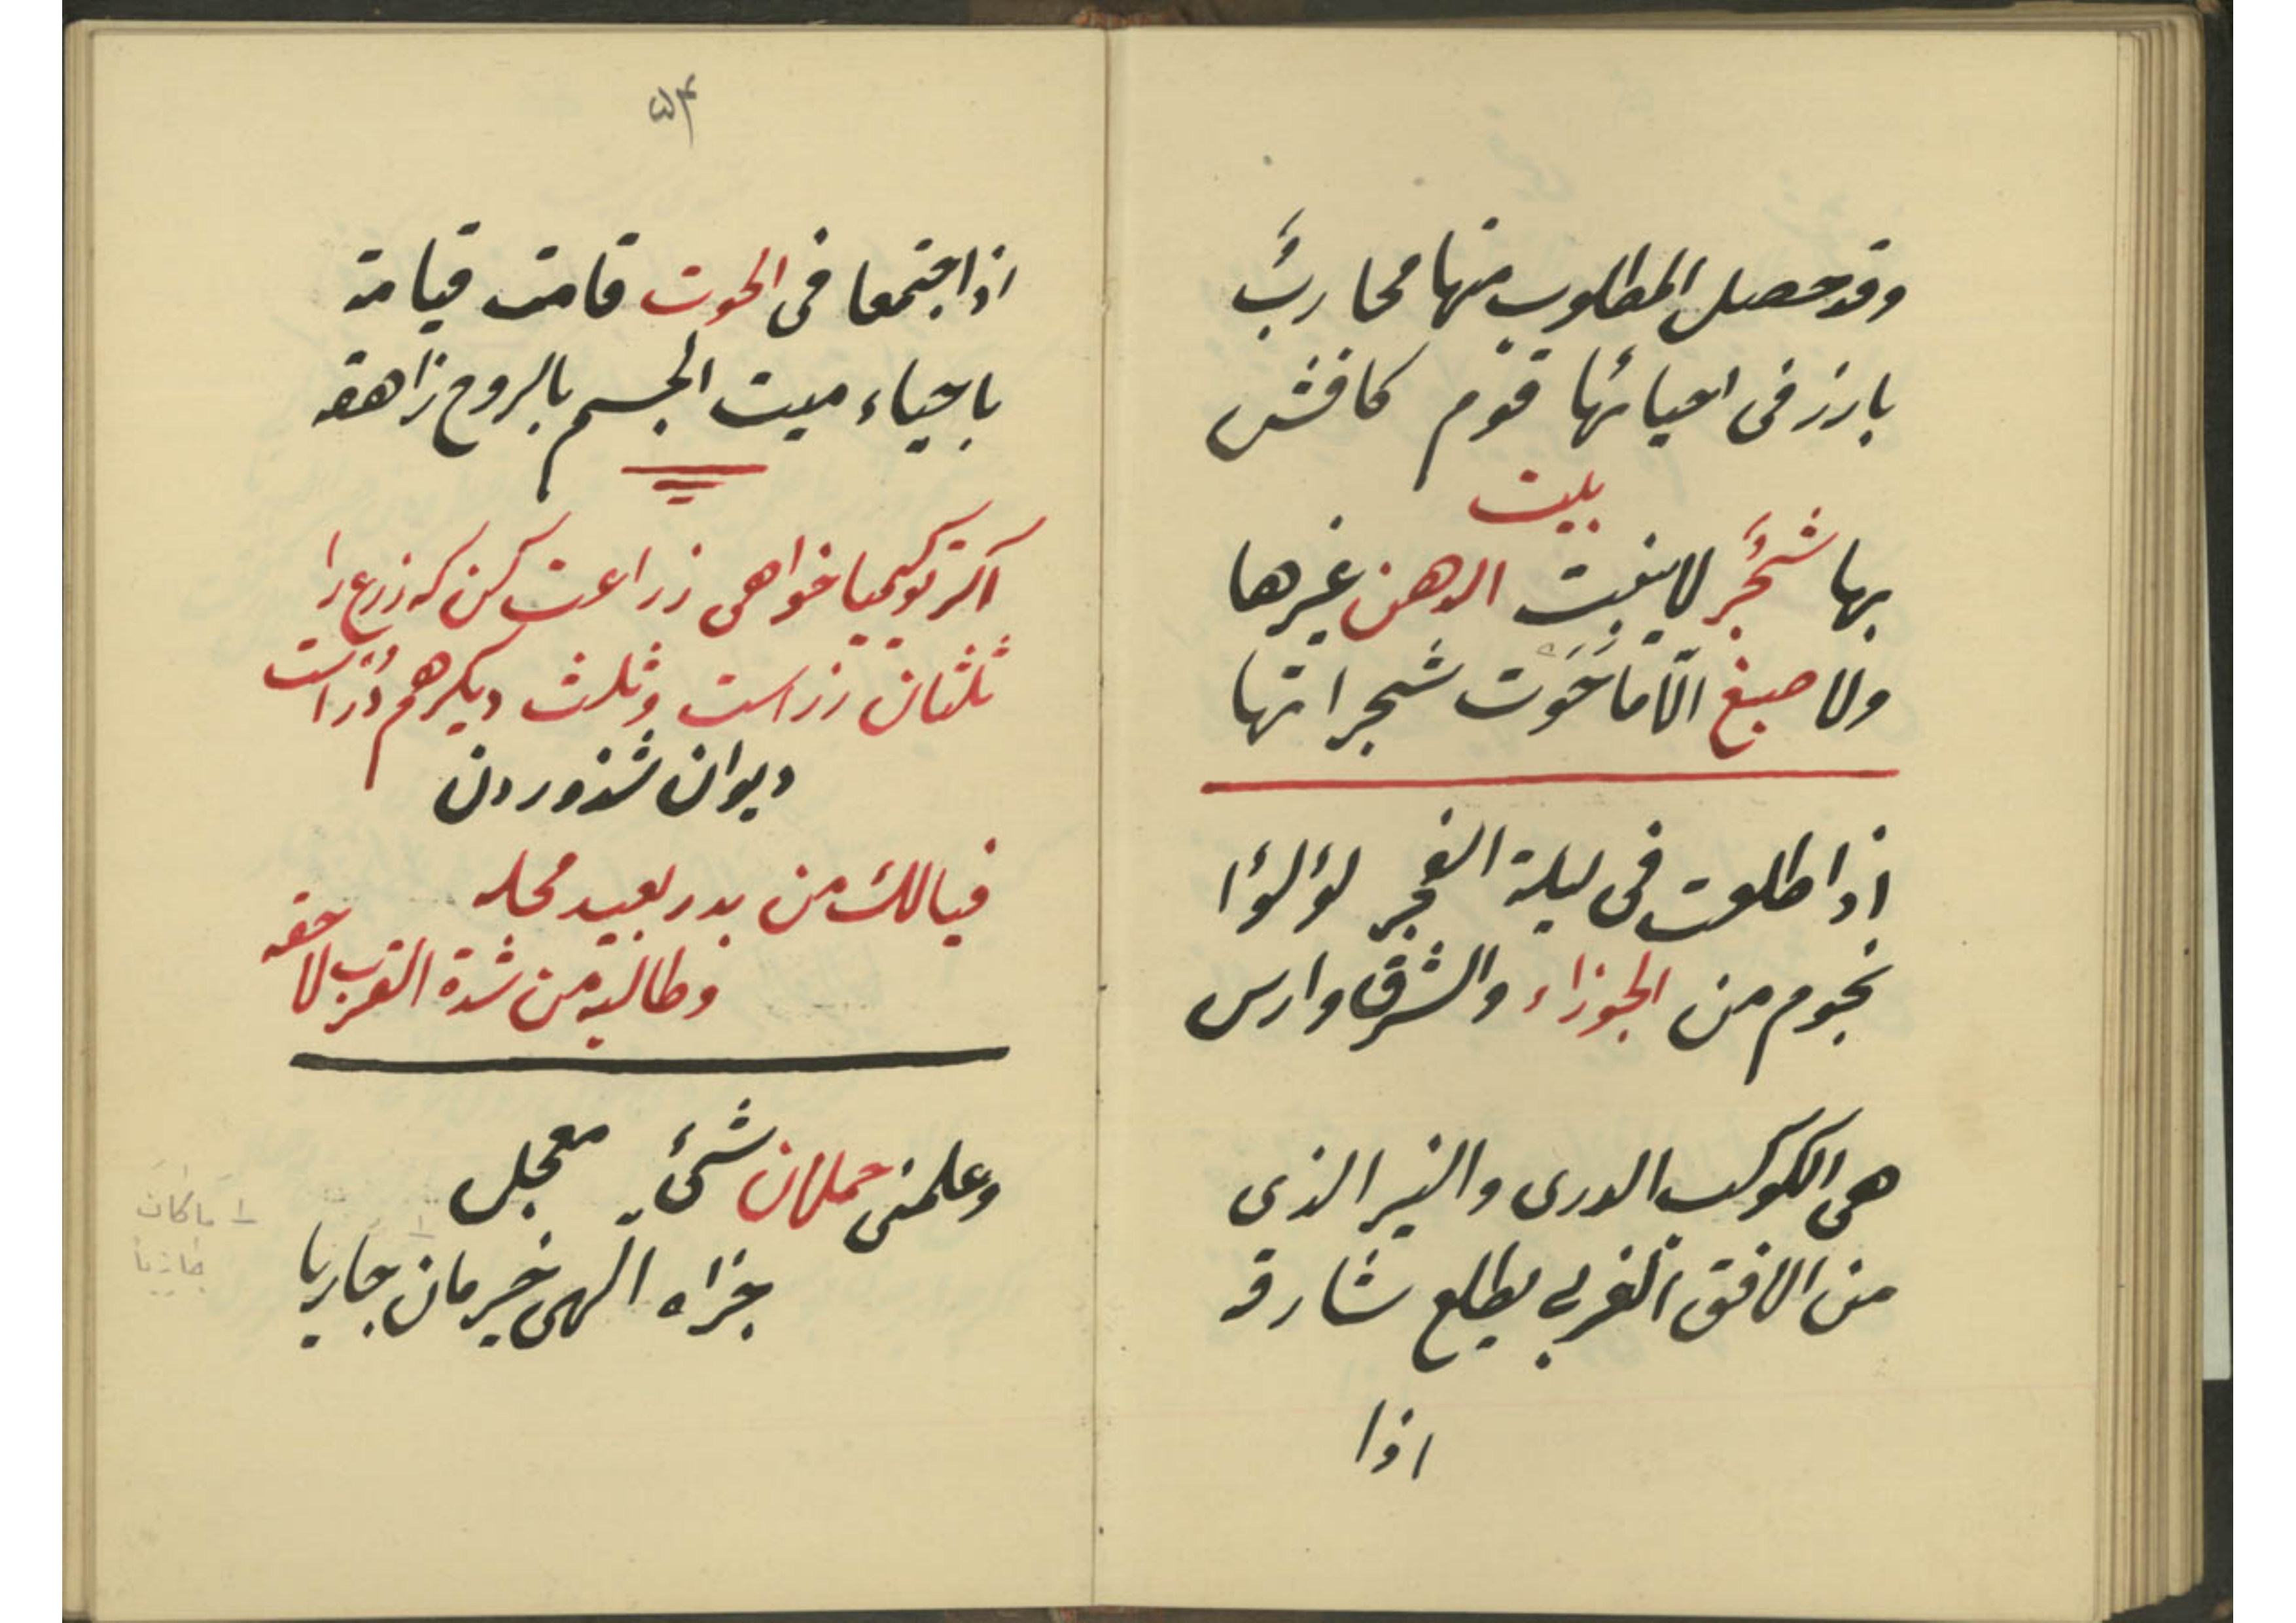 وقد حصل المطلوب منها محاربٌ
بارز فی احیائها قوم کافش
بیت
بها شجر لا ینبت الدهن غیرها
ولا صبغ الّا ما حَوَت شجراتها
اذا طلعت فی لیلة الفجر لؤلؤا
نجوم من الجوزاء والشرق وارس
هی الکوکب الدری والنیر الذی
من الافق الغربی یطلع شارقه
اذا
۵۴
اذا اجتمعا فی الحوت قامت قیامة
باحیاء میت الجسم بالروح زاهقه
اگر تو کیمیا خواهی زراعت کن که زرع را
ثلثان زر است و ثلث دیگر هم ذر است
دیوان شذور دن
فیالک من بدر بعید محله
وطالبة من شدة القرب لاحقه
وعلمنی حملان شیٔ معجل
جزاه الٓهی خیر مان جازیا
ا ماکان
جازیا